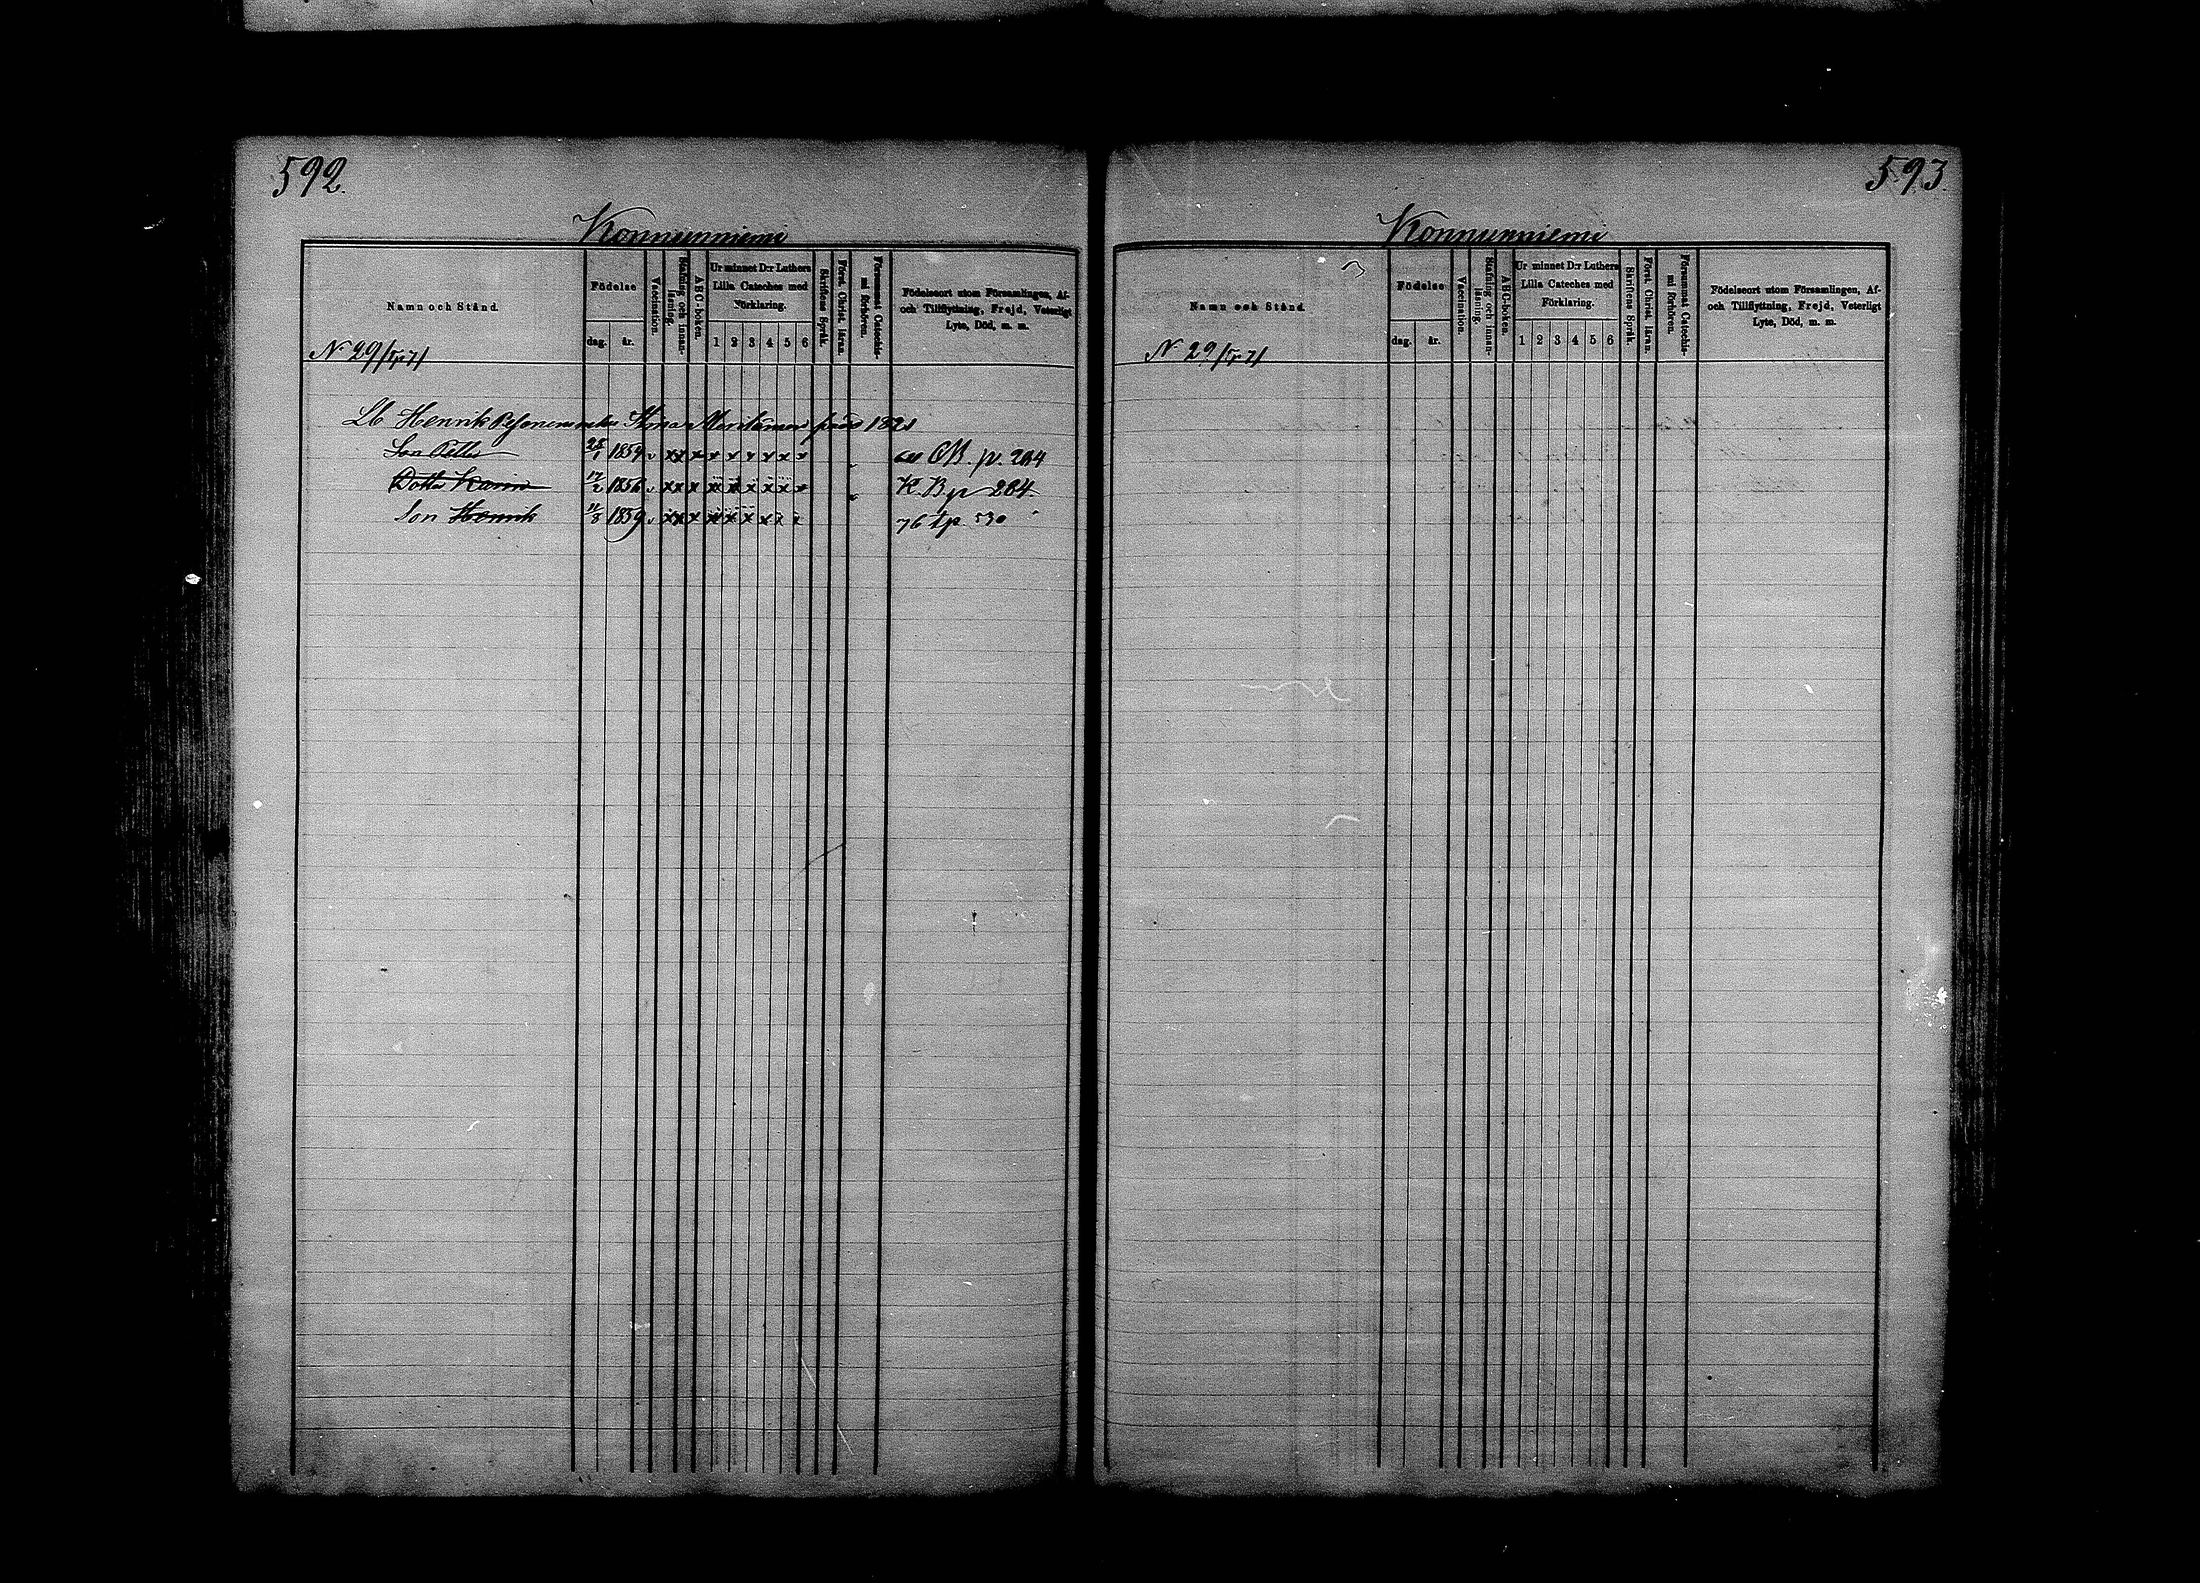 592.
Konnunniemi
Namn och Stånd.
Födelse
dag. år.
Vaccination.
Stafning och innan-
läsning.
ABC-boken.
Ur minnet D:r Luthers
Lilla Cateches med
Förklaring.
1 2 3 4 5 6
Skriftens Språk.
Först. Christ. läran.
Försummat Catechis-
mi förhören.
Födelseort utom Församlingen, Af-
och Tillflyttning, Frejd, Veterligt
Lyte, Död, m. m.
N 29
Lb Henrik Pesonen Stina 1821
Son Petter 25/1 1854 v xx x x x x x x x CB. p. 204
Dottr Karin 17/2 1856 v xx x x x x x x x K.B p 204
Son Henrik 11/8 1859 v xx x x x x x x x 76 Tp. 530
593.
Konnunniemi
Namn och Stånd.
Födelse
dag. år.
Vaccination.
Stafning och innan-
läsning.
ABC-boken.
Ur minnet D:r Luthers
Lilla Cateches med
Förklaring.
1 2 3 4 5 6
Skriftens Språk.
Först. Christ. läran.
Försummat Catechis-
mi förhören.
Födelseort utom Församlingen, Af-
och Tillflyttning, Frejd, Veterligt
Lyte, Död, m. m.
N 29